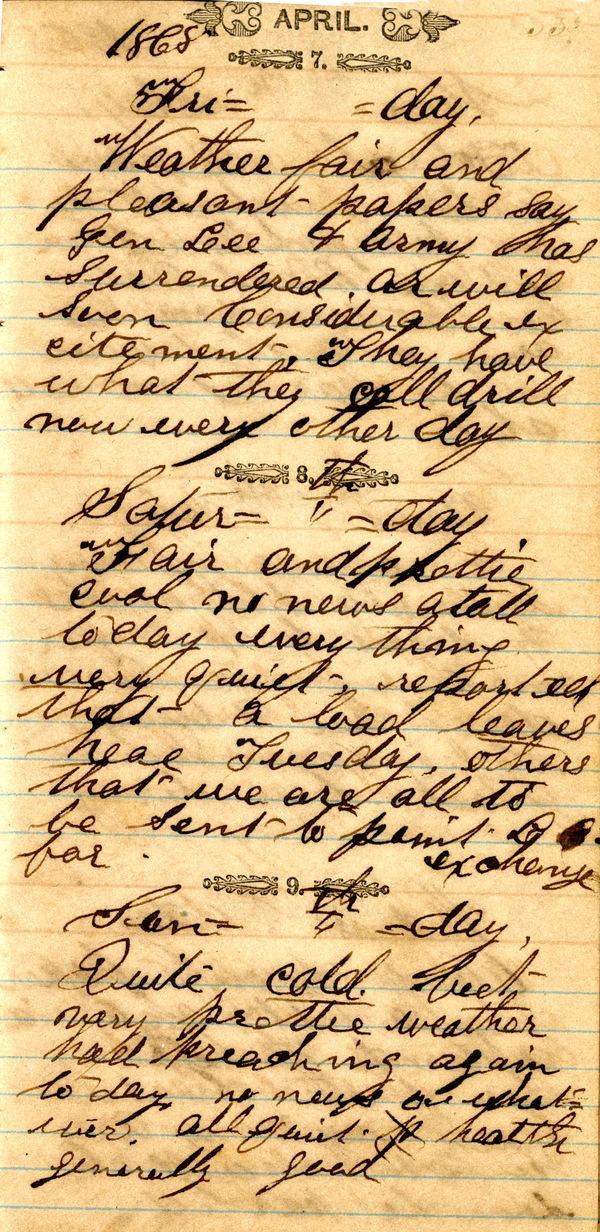 APRIL.
1868
7.
Fri= =day,
Weather fair and
pleasant- papers say
Gen Lee & army has
Surrendered or will
soon Considerable ex
citement, They have
what they call drill
now every other day
8. th
Satur= =day
Fair and prettie
cool no news atall
to day every thing
very quiet, reported
that a load leaves
heae Tuesday, others
that we are all to
be sent to point
for. exchange
9. th
Sun= =day,
Quite cold. but
very prettie weather
had preaching again
to day no news what=
ever. all quiet. health
generally good